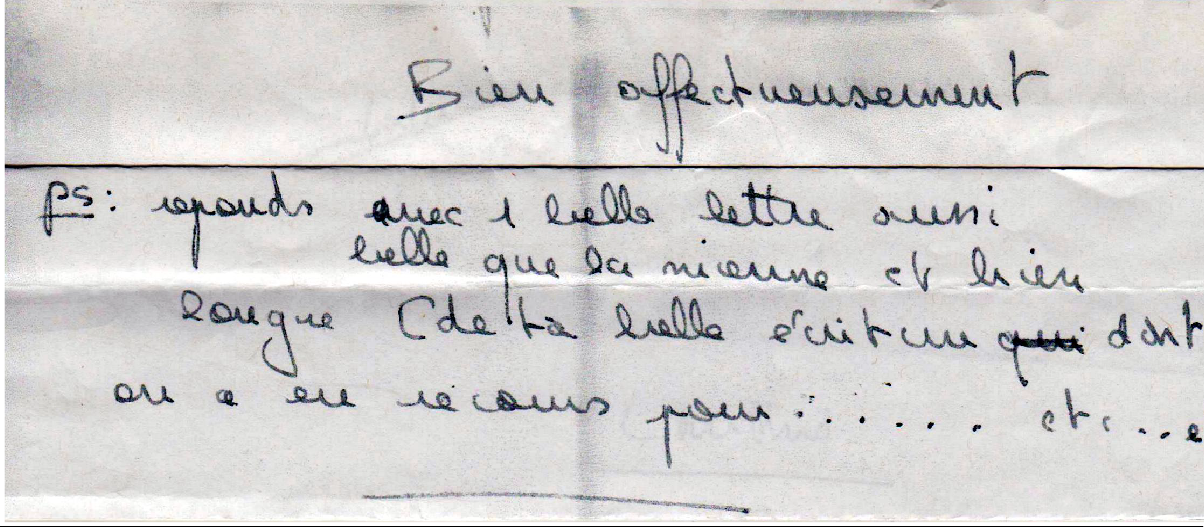 Bien affectueusement
ps: reponds avec 1 belle lettre aussi
belle que la mienne et bien
longue (de ta belle écriture qui dont
on a eu recours pour : . . . . . etc...e